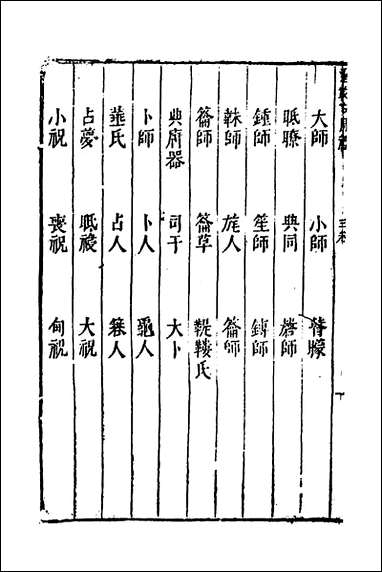 大師 小師 瞽矇
眡瞭 典同 磬師
鍾師 笙師 鎛師
韎師 旄人 籥師
籥師 籥章 鞮鞻氏
典庸器 司干 大卜
卜師 卜人 龜人
菙氏 占人 簭人
占夢 眡祲 大祝
小祝 喪祝 甸祝